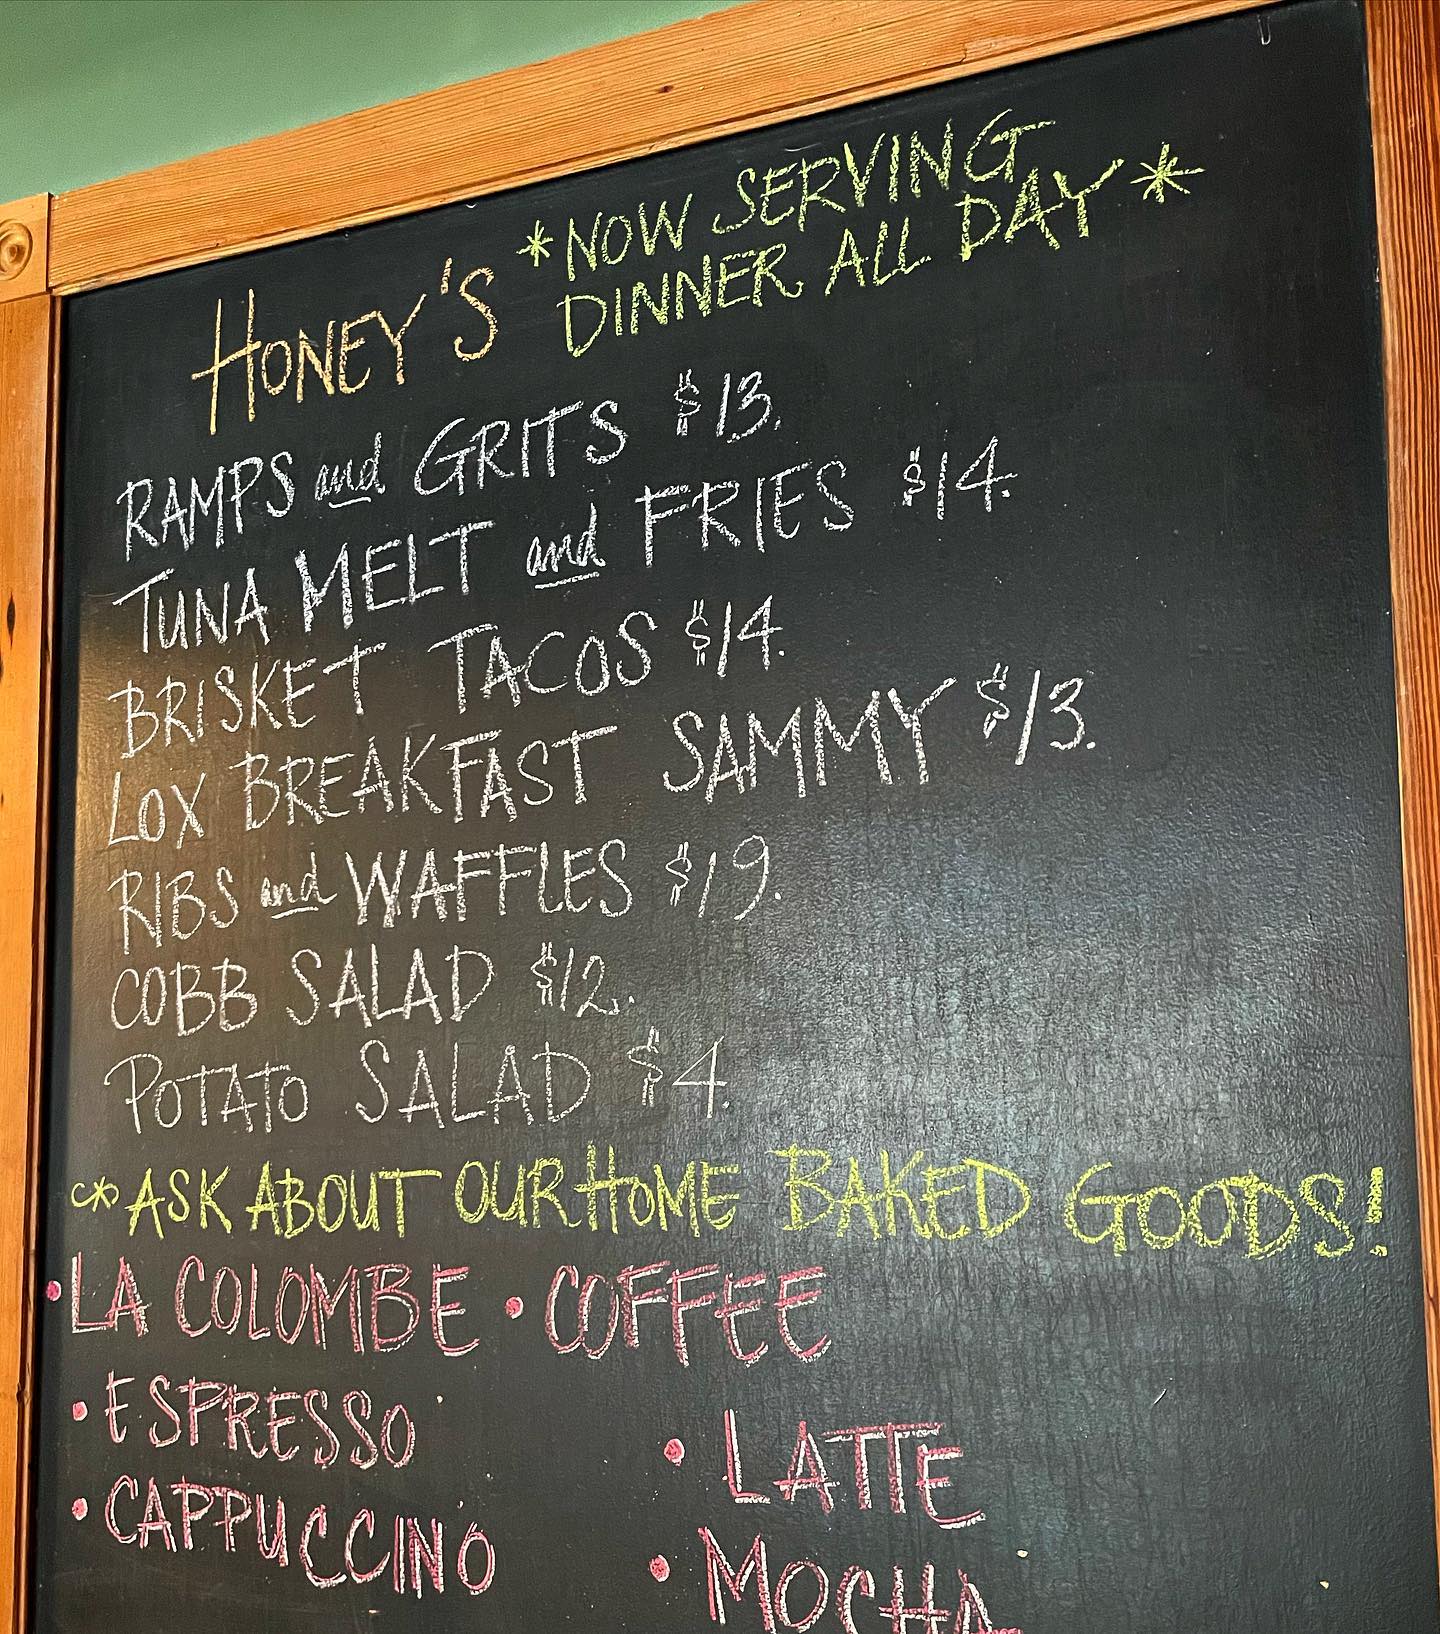 HONEY'S
*NOW SERVING
DINNER ALL DAY*
RAMPS and GRITS $13.
TUNA MELT and FRIES $14.
BRISKET TACOS $14.
LOX BREAKFAST SAMMY $13.
RIBS and WAFFLES $19.
COBB SALAD $12.
POTATO SALAD $4.
*ASK ABOUT OUR HOME BAKED GOODS!
•LA COLOMBE • COFFEE
•ESPRESSO
• LATTE
•CAPPUCCINO
• MOCHA